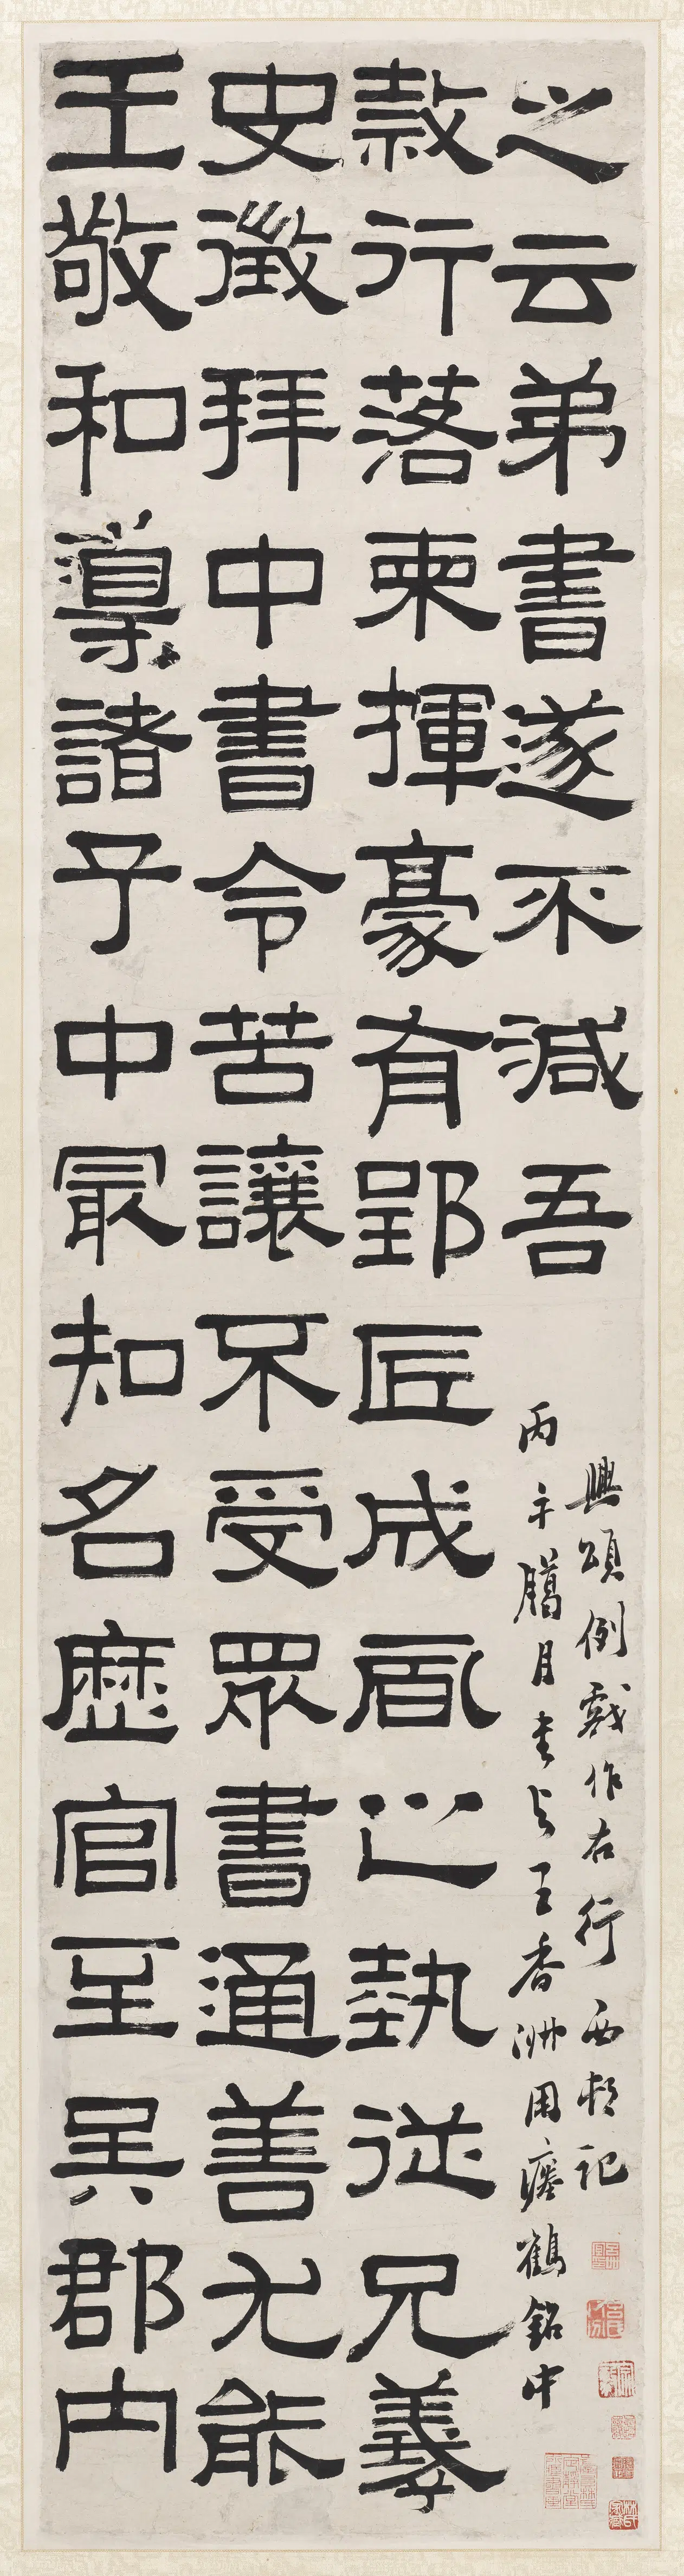 王敬和導諸子中最知名歷官至吳郡內
史徵拜中書令苦讓不受眾書通善尤能
隸行落柬揮豪有郢匠成風之埶從兄羲
之云弟書遂不減吾
丙午臘月書与王香洲用瘞鶴銘中
興頌例戲作右行西邨記